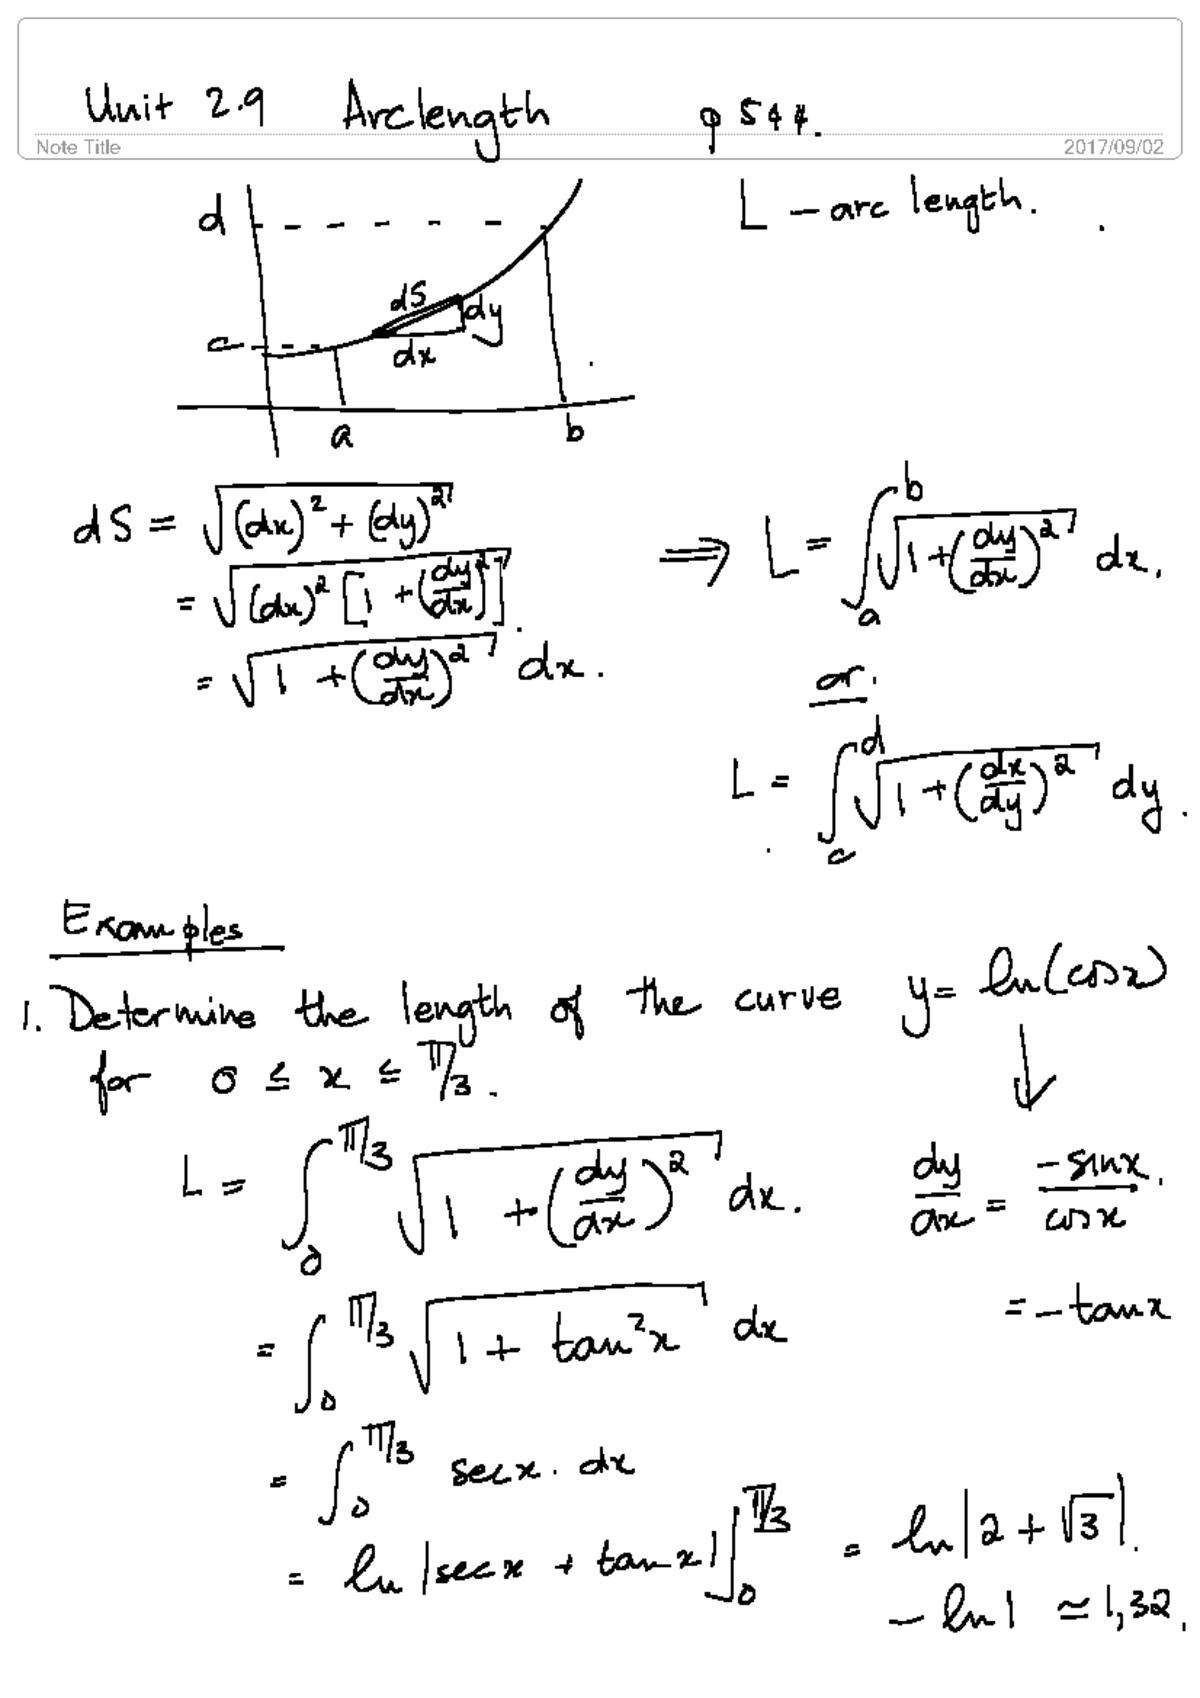 Unit 2.9 Arclength p 544.
Note Title 2017/09/02
L – arc length.
d
c
dS
dy
dx
a
b
dS = √((dx)² + (dy)²)
= √((dx)² [1 + (dy/dx)²]).
= √(1 + (dy/dx)²) dx.
⟹ L = ∫_a^b √(1 + (dy/dx)²) dx.
or.
L = ∫_c^d √(1 + (dx/dy)²) dy.
Examples
1. Determine the length of the curve y = ln(cosx)
for 0 ≤ x ≤ π/3.
↓
L = ∫_0^{π/3} √(1 + (dy/dx)²) dx.
dy/dx = -sinx/cosx.
= -tanx
= ∫_0^{π/3} √(1 + tan²x) dx
= ∫_0^{π/3} secx. dx
= ln |secx + tanx|]_0^{π/3} = ln|2 + √3|.
- ln 1 ≃ 1,32.